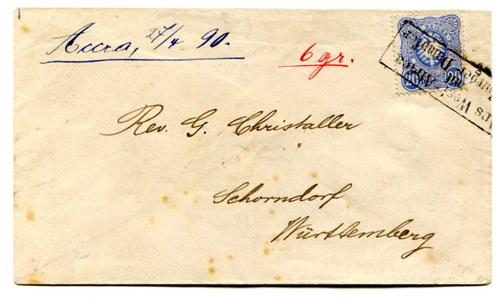 Accra, 27/4 90.
6 gr.
Rev. G. Christaller
Schorndorf
Württemberg